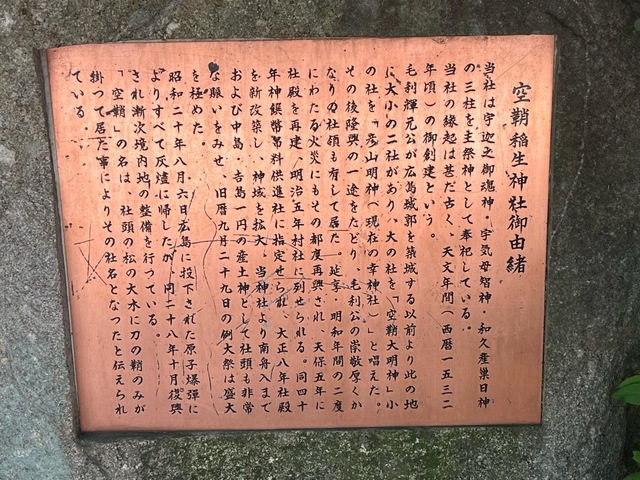 空鞘稲生神社御由緒
当社は宇迦之御魂神・宇気母智神・和久産巣日神
の三柱を主祭神として奉祀している。
当社の縁起は甚だ古く、天文年間(西暦一五三二
年頃)の御創建という。
毛利輝元公が広島城郭を築城する以前より此の地
に大小の二社があり、大の社を「空鞘大明神」小
の社を「彦山明神(現在の幸神社)」と唱えた。
その後隆興の一途をたどり、毛利公の崇敬厚くか
なりの社領も有して居た。延享・明和年間の二度
にわたる火災にもその都度再興され、天保五年に
社殿を再建、明治五年村社に列せられる。同四十
年神饌幣帛料供進社に指定せられ、大正八年社殿
を新改築し、神域を拡大、当神社より南舟入まで
および中島・吉島一円の産土神として社頭も非常
な賑いをみせ、旧暦九月二十九日の例大祭は盛大
を極めた。
昭和二十年八月六日広島に投下された原子爆弾に
よりすべて灰燼に帰したが、同二十八年十月復興
され漸次境内地の整備を行っている。
「空鞘」の名は、社頭の松の大木に刀の鞘のみが
掛って居た事によりその社名となったと伝えられ
ている。